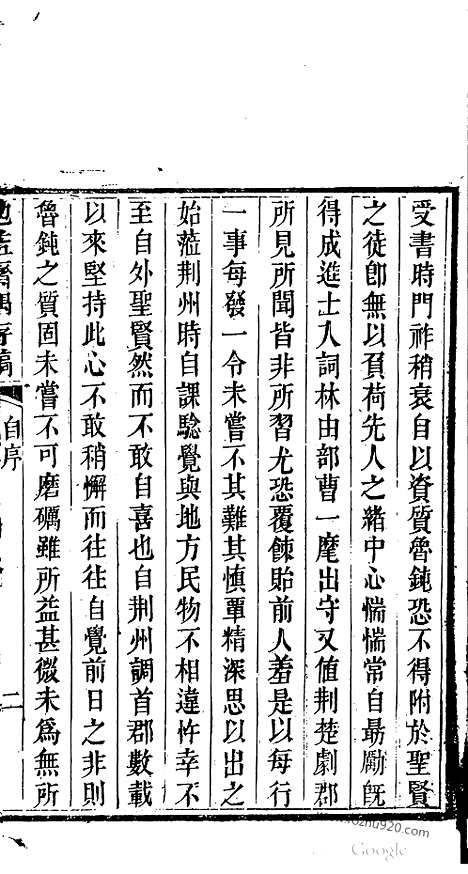 受書時門祚稍衰自以資質魯鈍恐不得附於聖賢
之徒卽無以負荷先人之緒中心惴惴常自勗勵旣
得成進士入詞林由部曹一麾出守又值荆楚劇郡
所見所聞皆非所習尤恐覆餗貽前人羞是以每行
一事每發一令未嘗不其難其愼覃精深思以出之
始蒞荆州時自課驗覺與地方民物不相違忤幸不
至自外聖賢然而不敢自喜也自荆州調首郡數載
以來堅持此心不敢稍懈而往往自覺前日之非則
魯鈍之質固未嘗不可磨礪雖所益甚微未爲無所
自序
二
Google